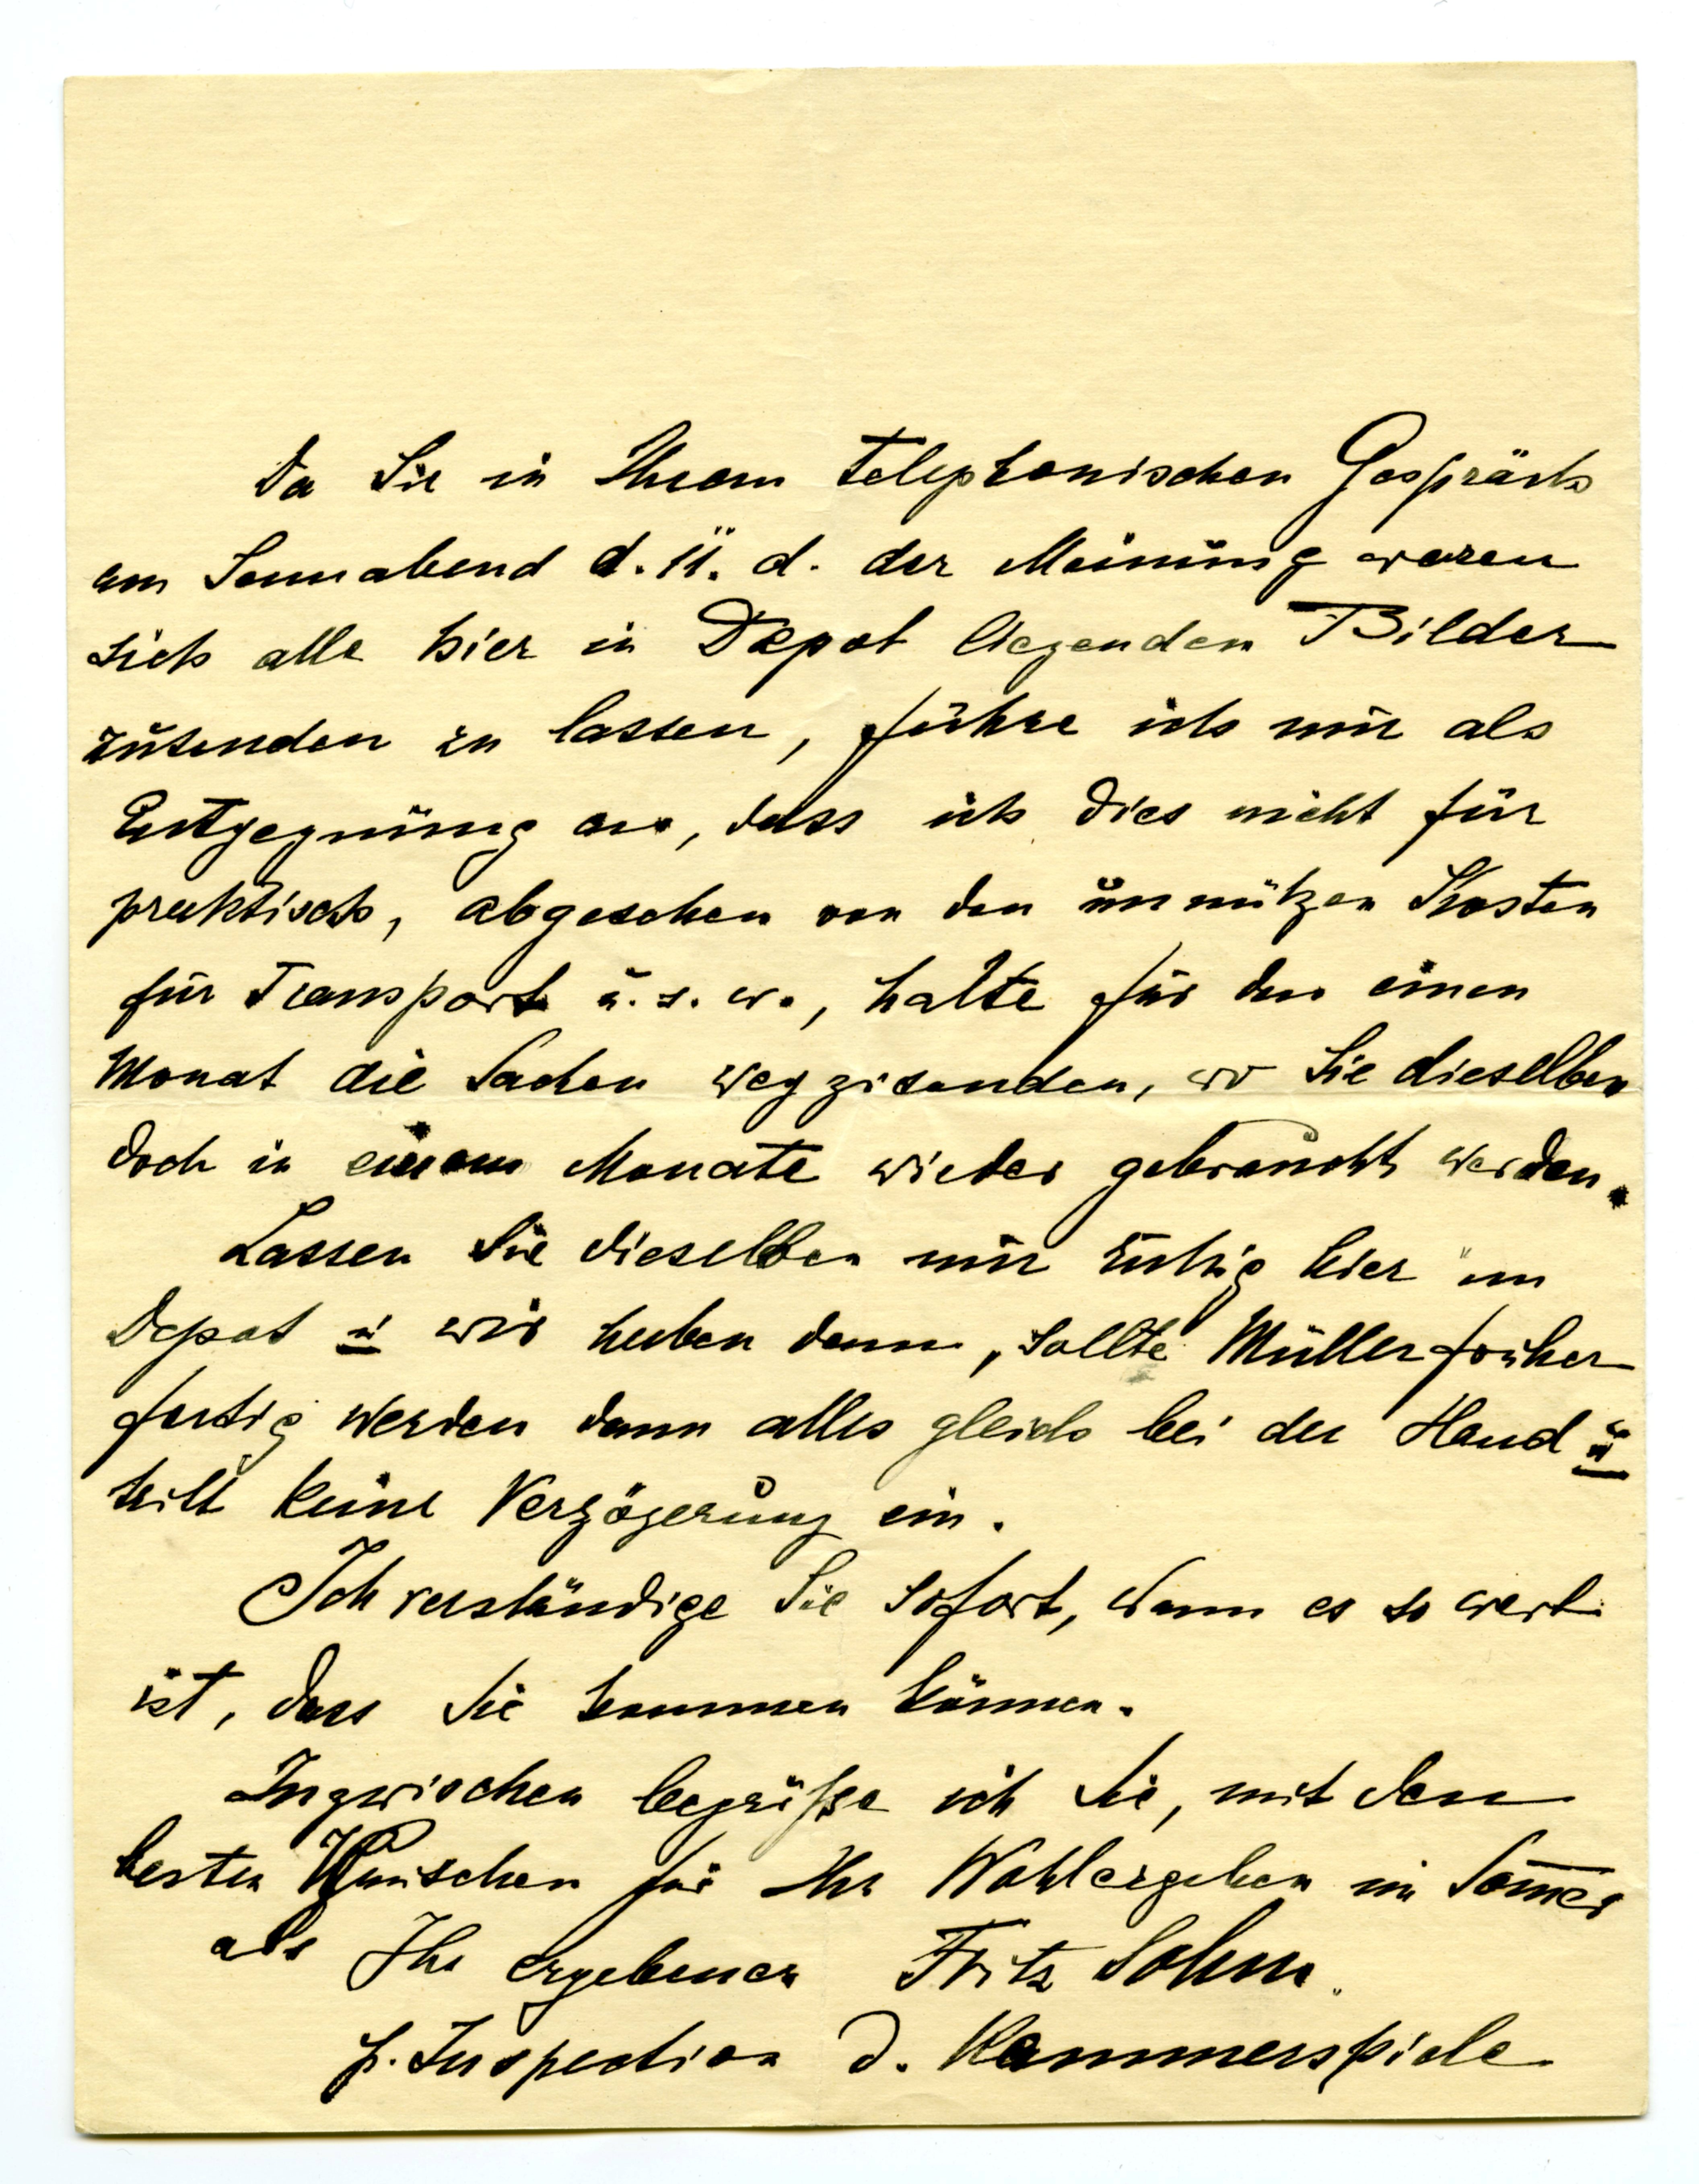 Da Sie in Ihrem telephonischen Gespräch
am Sonnabend d. 11. d. der Meinung waren
sich alle hier in Depot liegenden Bilder
zusenden zu lassen, führe ich nur als
Entgegnung an, dass ich dies nicht für
praktisch, abgesehen von den unnützen Kosten
für Transport u. s. w., halte für den einen
Monat die Sachen wegzusenden, wo Sie dieselben
doch in einem Monate wieder gebraucht werden.
Lassen Sie dieselben nur ruhig hier im
Depot u wir haben dann, sollte Müller früher
fertig werden dann alles gleich bei der Hand u
tritt keine Verzögerung ein.
Ich verständige Sie sofort, wann es so weit
ist, dass Sie kommen können.
Inzwischen begrüße ich Sie, mit den
besten Wünschen für Ihr Wohlergehen im Som̅er
als Ihr ergebener Fritz
p. Inspection d. Kammerspiele